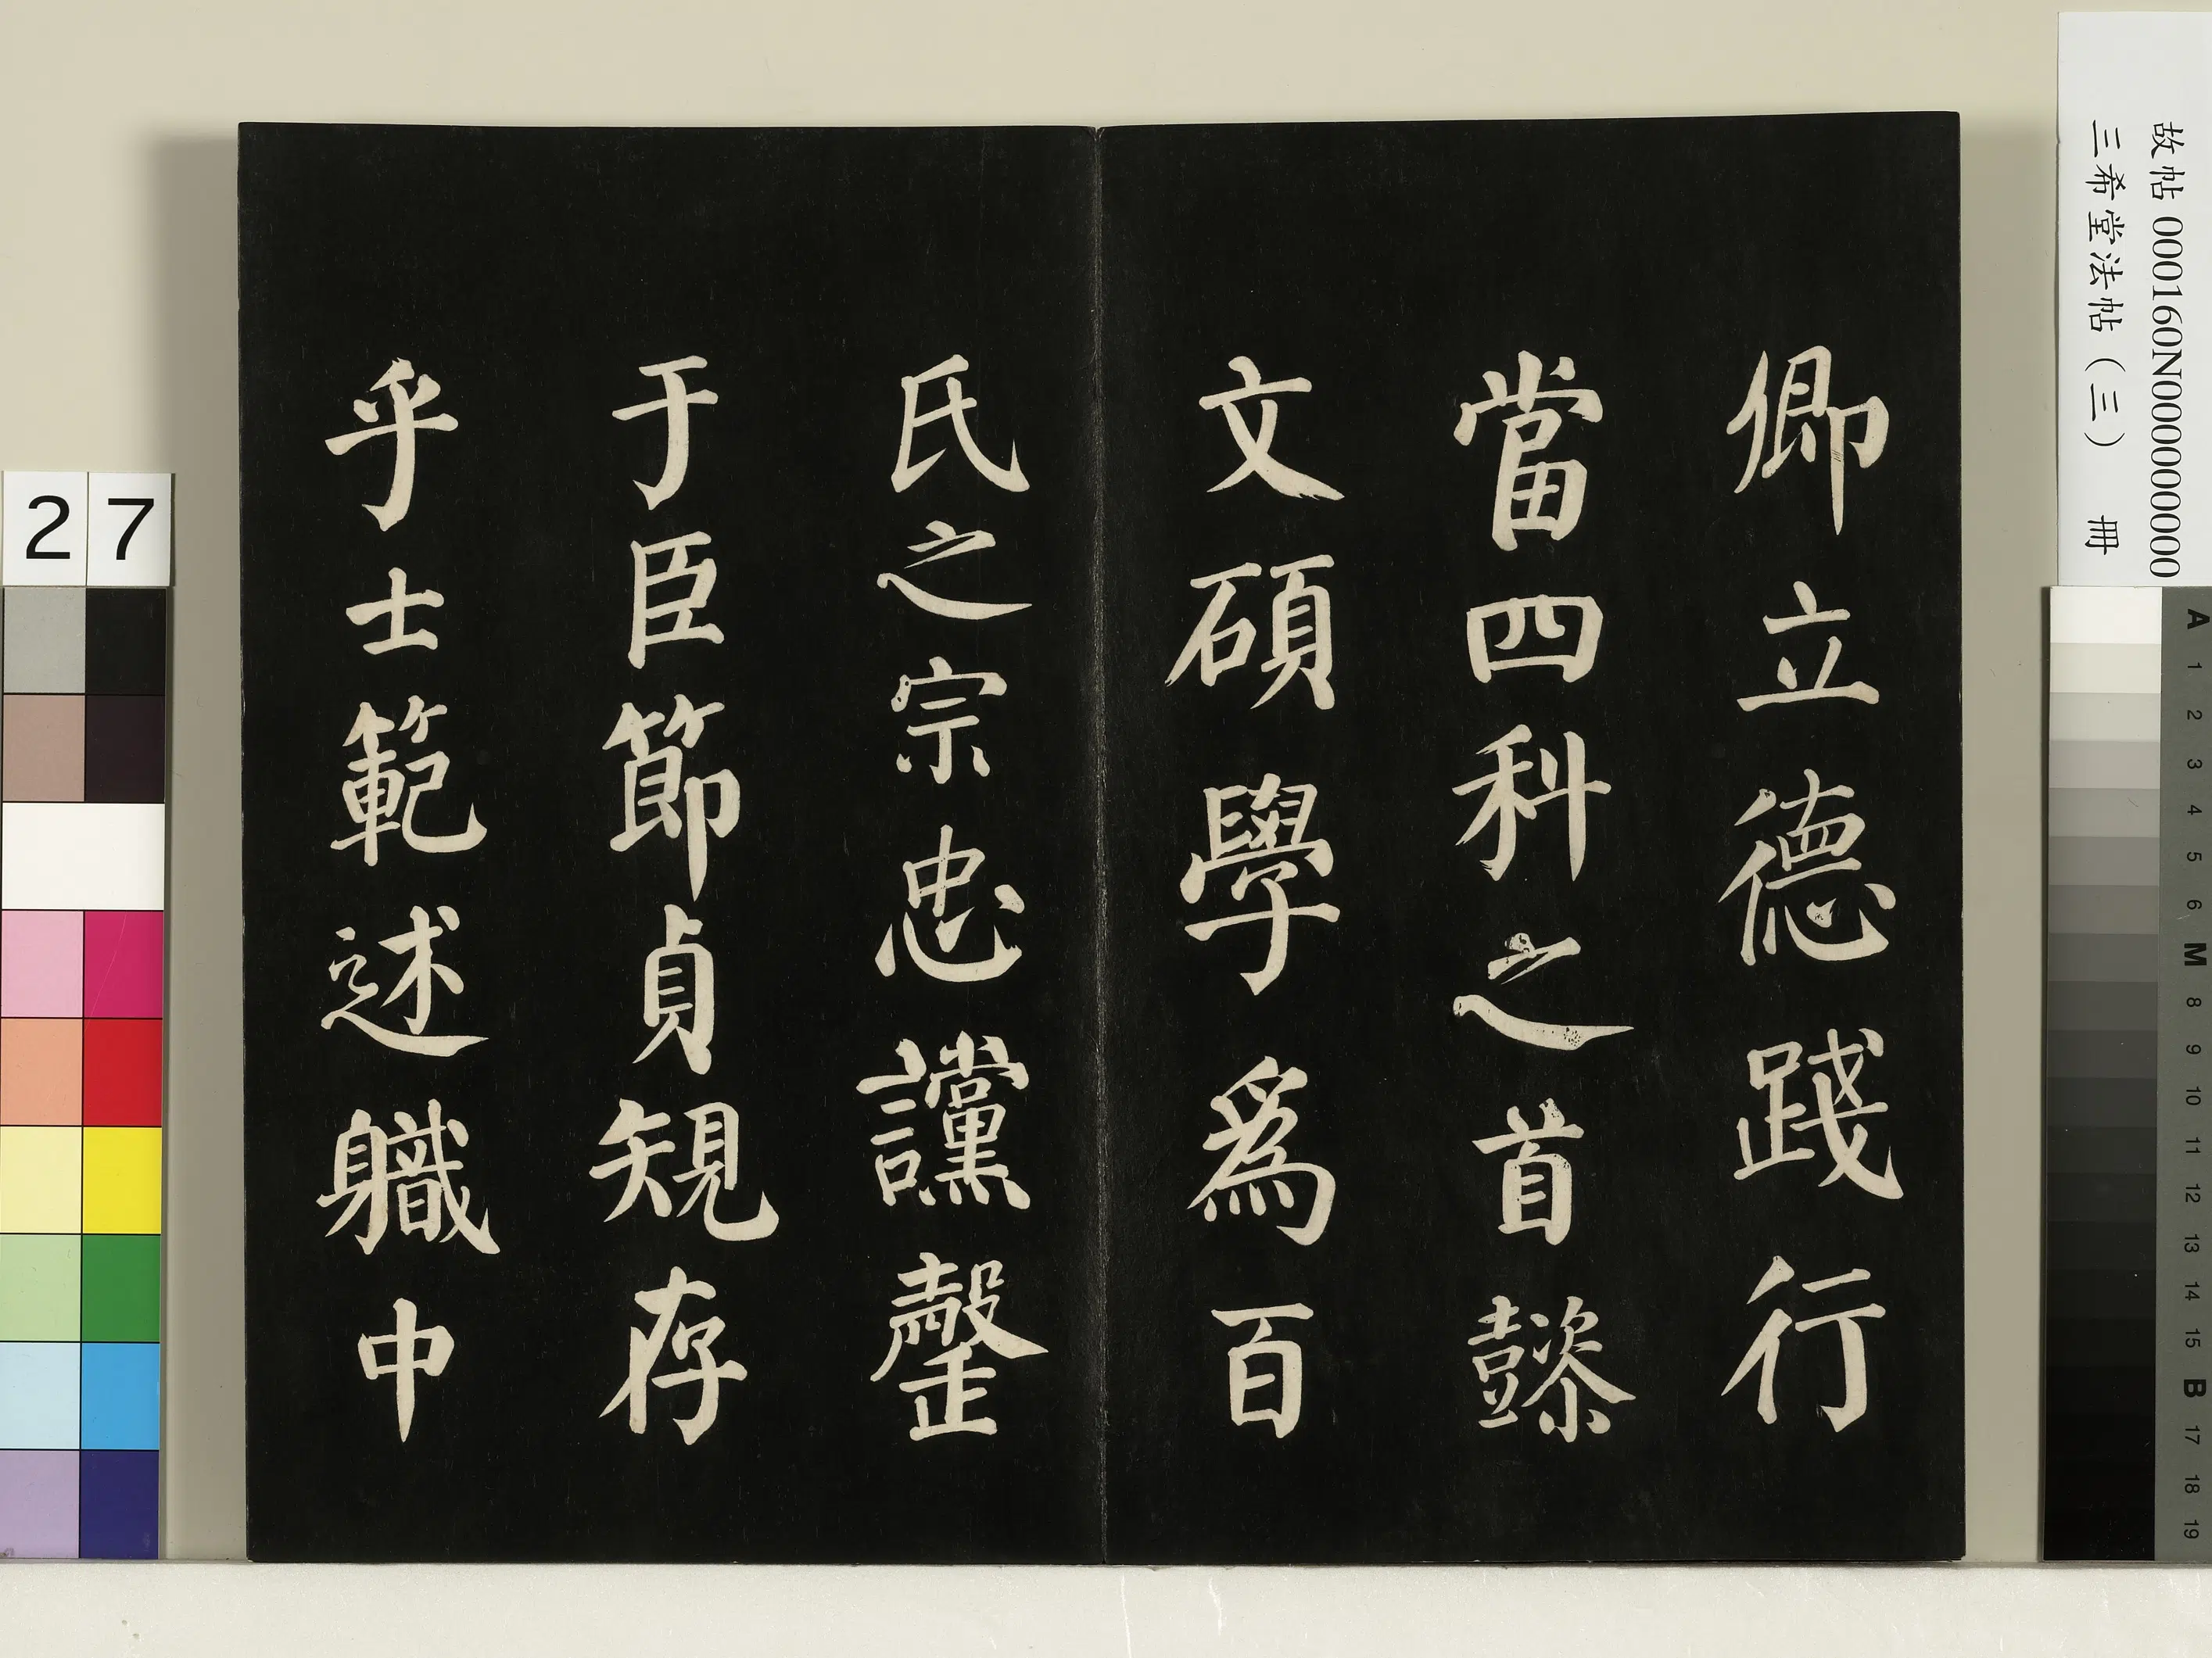 卿立德踐行
當四科之首懿
文碩學為百
氏之宗忠讜罄
于臣節貞規存
乎士範述職中
故帖 000160N000000000
三希堂法帖（三） 冊
27
A
1
2
3
4
5
6
M
8
9
10
11
12
13
14
15
B
17
18
19